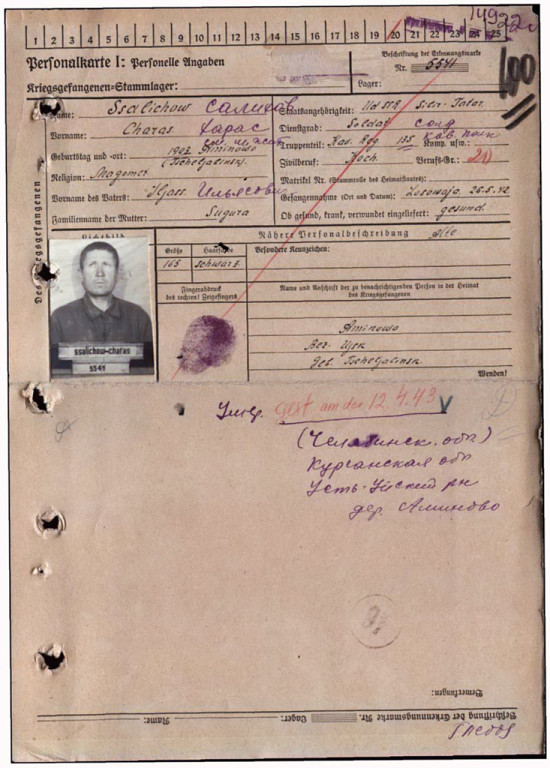 1 2 3 4 5 6 7 8 9 10 11 12 13 14 15 16 17 18 19 20 21 22 23 24 25
Personalkarte I: Personelle Angaben
Beschriftung der Erkennungsmarke
Nr. 5541
Kriegsgefangenen-Stammlager:
Lager:
Des Kriegsgefangenen
Name: Ssalichow Салихов
Vorname: Charas Харас
Geburtstag und -ort: 1907 Aminowo
(Tscheljabinsk)
Religion: Magomet
Vorname des Vaters: Iljass Ильясович
Familienname der Mutter: Sugura
Staatsangehörigkeit: UdSSR
Dienstgrad: Soldat солд
Truppenteil: Kav. Reg 135 Komp. usw.: кав. полк
Zivilberuf: Koch Berufs-Gr.: 20
Matrikel Nr. (Stammrolle des Heimatstaates):
Gefangennahme (Ort und Datum): Losowaja 26.5.42
Ob gesund, krank, verwundet eingeliefert: gesund
Lichtbild
Nähere Personalbeschreibung
Größe Haarfarbe Besondere Kennzeichen:
165 schwarz
Fingerabdruck
des rechten! Zeigefingers
Name und Anschrift der zu benachrichtigenden Person in der Heimat
des Kriegsgefangenen
Aminowo
Bez. Ujsk
Geb. Tscheljabinsk
ssalichow-charas
5541
Wenden!
Умер. gest am den 12.4.43
(Челябинск. обл)
Курганская обл
Усть-Уйский рн
дер. Аминово
Bemerkungen:
Beschriftung der Erkennungsmarke Nr. Lager: Name: